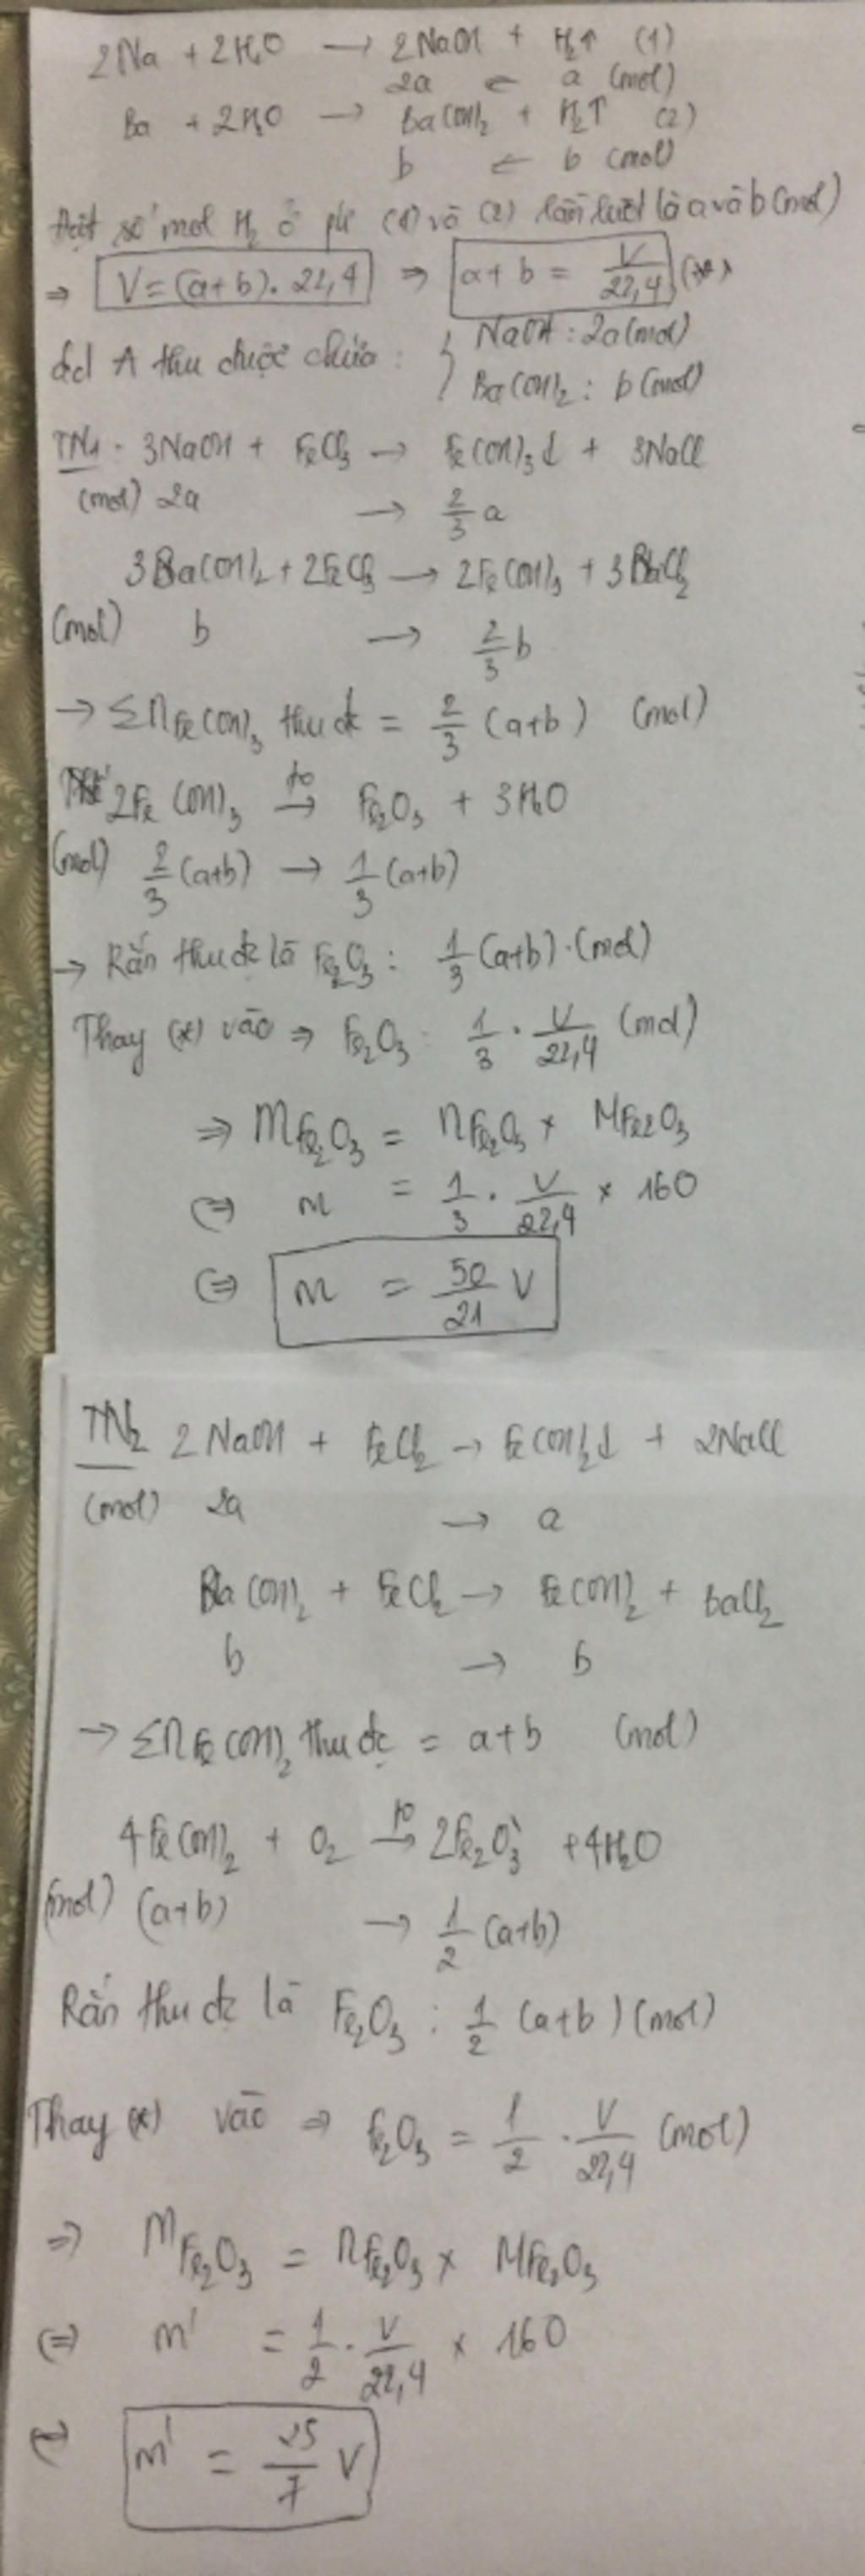 2Na + 2H₂O → 2NaOH + H₂↑ (1)
2a ← a (mol)
Ba + 2H₂O → Ba(OH)₂ + H₂↑ (2)
b ← b (mol)
Đặt số mol H₂ ở pứ (1) và (2) lần lượt là a và b (mol)
⇒ V = (a+b). 22,4 ⇒ a+b = V/22,4 (*)
dd A thu được chứa : { NaOH : 2a (mol)
Ba(OH)₂ : b (mol)
TN1 . 3NaOH + FeCl₃ → Fe(OH)₃↓ + 3NaCl
(mol) 2a → 2/3 a
3Ba(OH)₂ + 2FeCl₃ → 2Fe(OH)₃ + 3BaCl₂
(mol) b → 2/3 b
→ Σn Fe(OH)₃ thu đc = 2/3 (a+b) (mol)
2Fe(OH)₃ t⁰→ Fe₂O₃ + 3H₂O
(mol) 2/3 (a+b) → 1/3 (a+b)
→ Rắn thu đc là Fe₂O₃ : 1/3 (a+b) . (mol)
Thay (*) vào ⇒ Fe₂O₃ : 1/3 . V/22,4 (mol)
⇒ mFe₂O₃ = nFe₂O₃ × MFe₂O₃
⇔ m = 1/3 . V/22,4 × 160
⇔ m = 50/21 V
TN2 2NaOH + FeCl₂ → Fe(OH)₂↓ + 2NaCl
(mol) 2a → a
Ba(OH)₂ + FeCl₂ → Fe(OH)₂ + BaCl₂
b → b
→ Σn Fe(OH)₂ thu đc = a+b (mol)
4Fe(OH)₂ + O₂ t⁰→ 2Fe₂O₃ + 4H₂O
(mol) (a+b) → 1/2 (a+b)
Rắn thu đc là Fe₂O₃ : 1/2 (a+b) (mol)
Thay (*) vào ⇒ Fe₂O₃ = 1/2 . V/22,4 (mol)
⇒ mFe₂O₃ = nFe₂O₃ × MFe₂O₃
⇔ m' = 1/2 . V/22,4 × 160
⇔ m' = 25/7 V